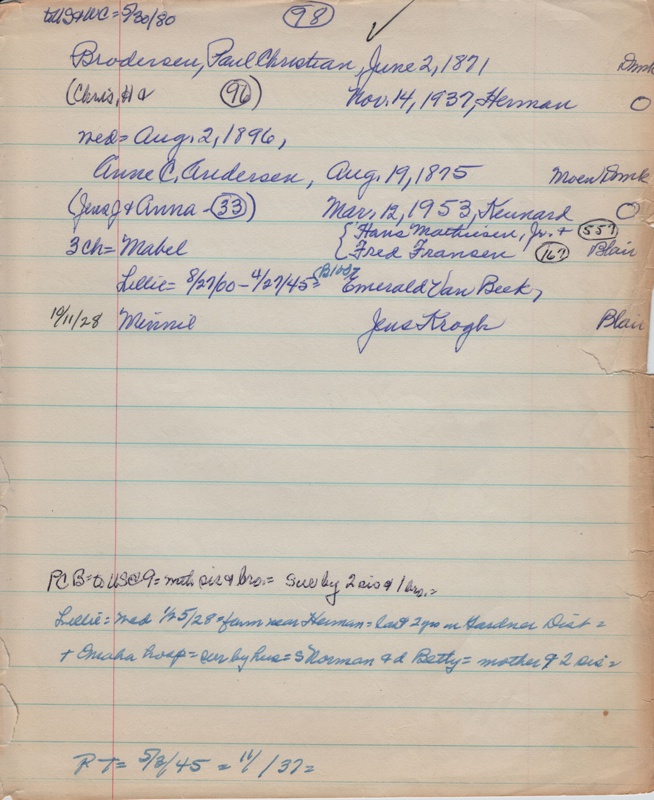 to US & WC = 5/30/80 (98)
Brodersen, Paul Christian, June 2, 1871 Dmk
(Chris, H a (96) Nov. 14, 1937, Herman O
wed = Aug. 2, 1896,
Anne C. Andersen, Aug. 19, 1875 Moen Dmk
(Jens J & Anna - (33) Mar. 12, 1953, Kennard O
{ Hans Mathiesen, Jr. + (557)
3 ch = Mabel { Fred Fransen (167) Blair
Lillie = 8/27/00 - 4/27/45 = Emerald Van Beek,
10/11/28 Minnie Jens Krogh Blair
PCB = to US @ 9 = moth sis & bro. = Sur by 2 sis & 1 bro. =
Lillie = wed 5/28 = farm near Herman = last 2 yrs in Gardner Dist =
+ Omaha hosp = sur by hus = S Norman & d Betty = mother & 2 sis =
P T = 5/3/45 = 11/ /37 =